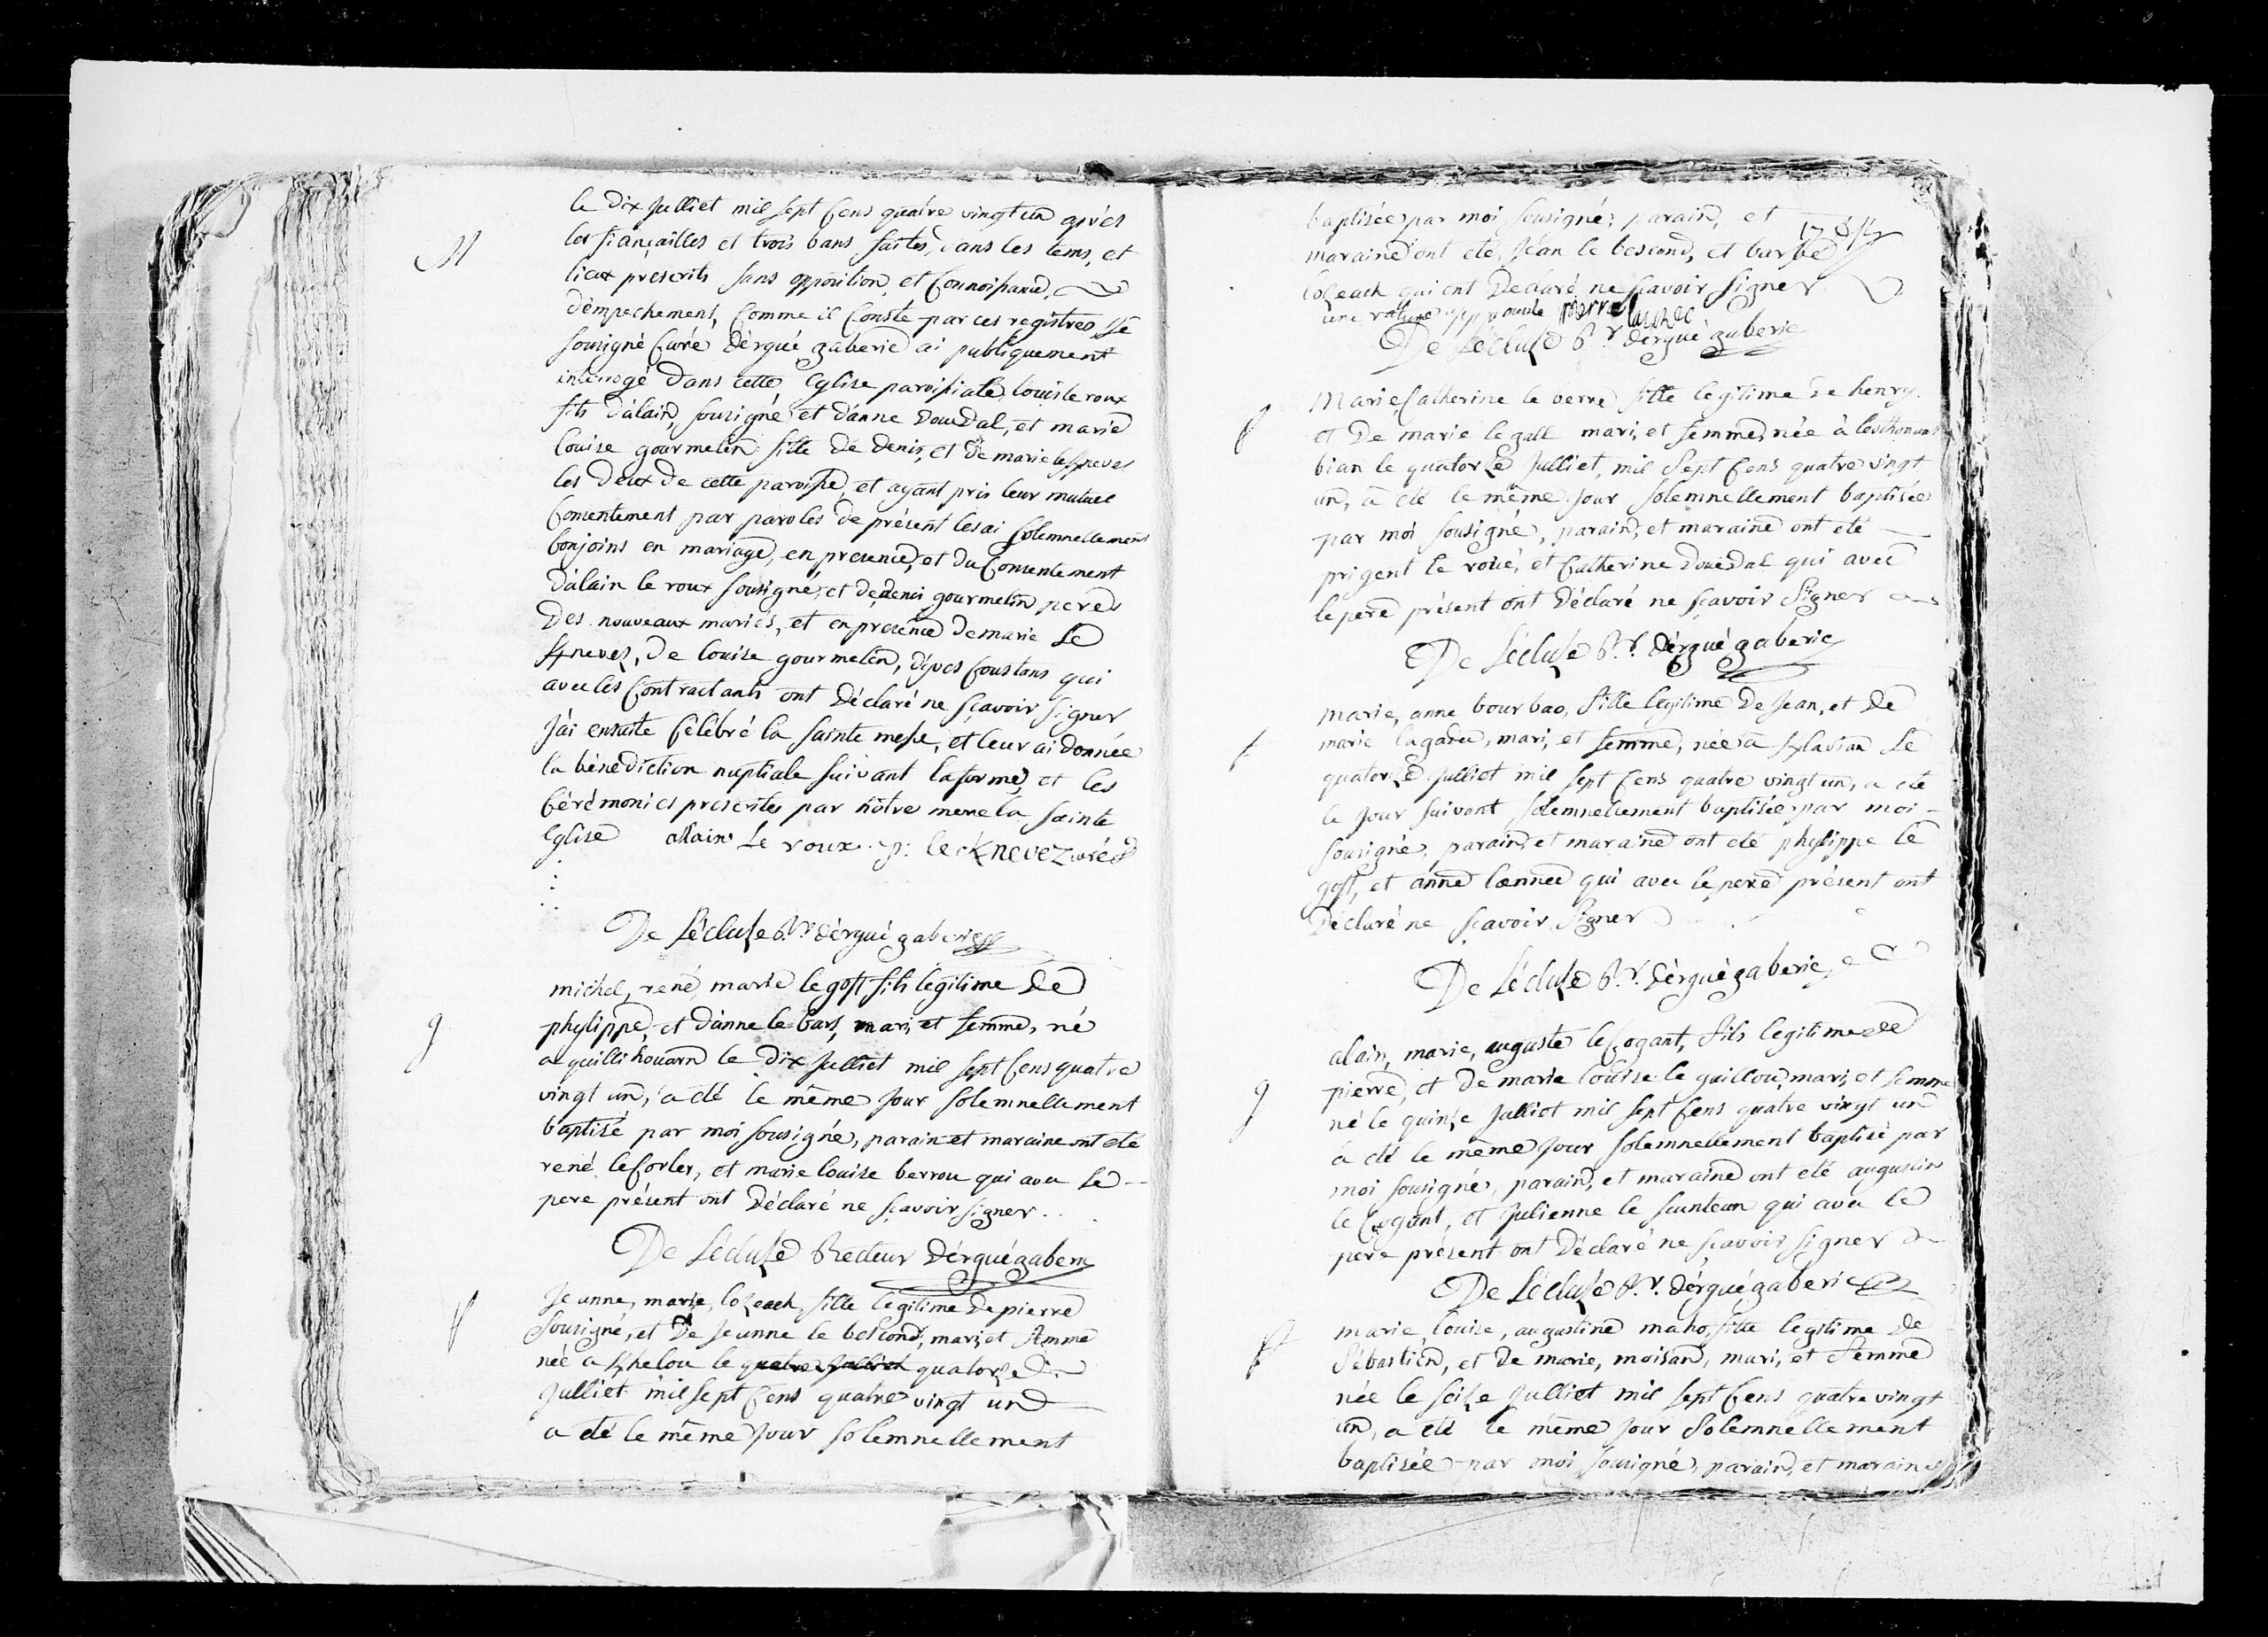 le dix Julliet mil sept cens quatre vingt un après
les fiançailles et trois bans faites, dans les tems, et
M
lieux prescrits sans opposition, et connoissance,
d'empechement, comme il conste par ces registres, Je
sousigné curé d'ergué gaberic ai publiquement
interrogé dans cette Eglise paroissiale, louis le roux
fils d'alain, sousigné, et d'anne Douedal, et marie
louise gourmelin fille de denis, et de marie le Kneves
les deux de cette paroisse, et ayant pris leur mutuel
consentement par paroles de présent les ai solemnellement
conjoins en mariage, en presence, et du consentement
d'alain le roux sousigné, et de denis gourmelin peres
des nouveaux mariés, et en presence de marie le
Knevez, de louise gourmelin, d'yves coustans qui
avec les contractants ont déclaré ne sçavoir signer
J'ai ensuite célébré la sainte messe, et leur ai donnée
la bénédiction nuptiale suivant la forme, et les
cérémonies prescrites par nôtre mere la sainte
Eglise allain Le roux p: le Knevez
De Lécluse Rr. d'ergué gaberic
michel, rené, marie le goff fils légitime de
phylippe, et d'anne le bars, mari, et femme, né
g
a quillihouarn le dix Julliet mil sept cens quatre
vingt un, a été le même jour solemnellement
baptisé par moi sousigné, parain et maraine ont été
rené le corler, et marie louise berrou qui avec le
pere présent ont déclaré ne sçavoir signer.
De Lécluse Recteur d'ergué gaberic
Jeanne, marie, lozeach, fille legitime de pierre
f
sousigné, et de Jeanne le bescond, mari, et femme
née a Khelou le quatre Julliet quatorze
Julliet mil sept cens quatre vingt un
a été le même jour solemnellement
baptisée par moi sousigné, parain, et
maraine ont été, Jean le bescond, et barbe
lozeach qui ont déclaré ne sçavoir signer
une rature approuvée pierre
De Lécluse Rr. d'ergué gaberic
Marie, catherine le berre fille legitime de henry
f
et de marie le gall mari, et femme, née à
bian le quatorze Julliet, mil sept cens quatre vingt
un, a été le même jour solemnellement baptisée
par moi sousigné, parain, et maraine ont été
prigent le roué, et catherine douedal qui avec
le pere présent ont déclaré ne sçavoir signer
De Lécluse Rr. d'ergué gaberic
marie, anne bourbao, fille legitime de Jean, et de
f
marie lagadec, mari, et femme, née a le
quatorze Julliet mil sept cens quatre vingt un, a été
le jour suivant solemnellement baptisée par moi
sousigné, parain, et maraine ont été phylippe le
goff, et anne laennec qui avec le pere présent ont
déclaré ne sçavoir signer
De Lécluse Rr. d'ergué gaberic
alain, marie, auguste le cogant, fils legitime de
pierre, et de marie louise le guillou, mari, et femme
g
né le quinze Julliet mil sept cens quatre vingt un
a été le même jour solemnellement baptisé par
moi sousigné, parain, et maraine ont été augustin
le cogant, et Julienne le qui avec le
pere présent ont déclaré ne sçavoir signer
De Lécluse Rr. d'ergué gaberic
marie, louise, augustine maho, fille legitime de
f
sébastien, et de marie, moisan, mari, et femme
née le seize Julliet mil sept cens quatre vingt
un, a été le même jour solemnellement
baptisée par moi sousigné, parain, et maraine